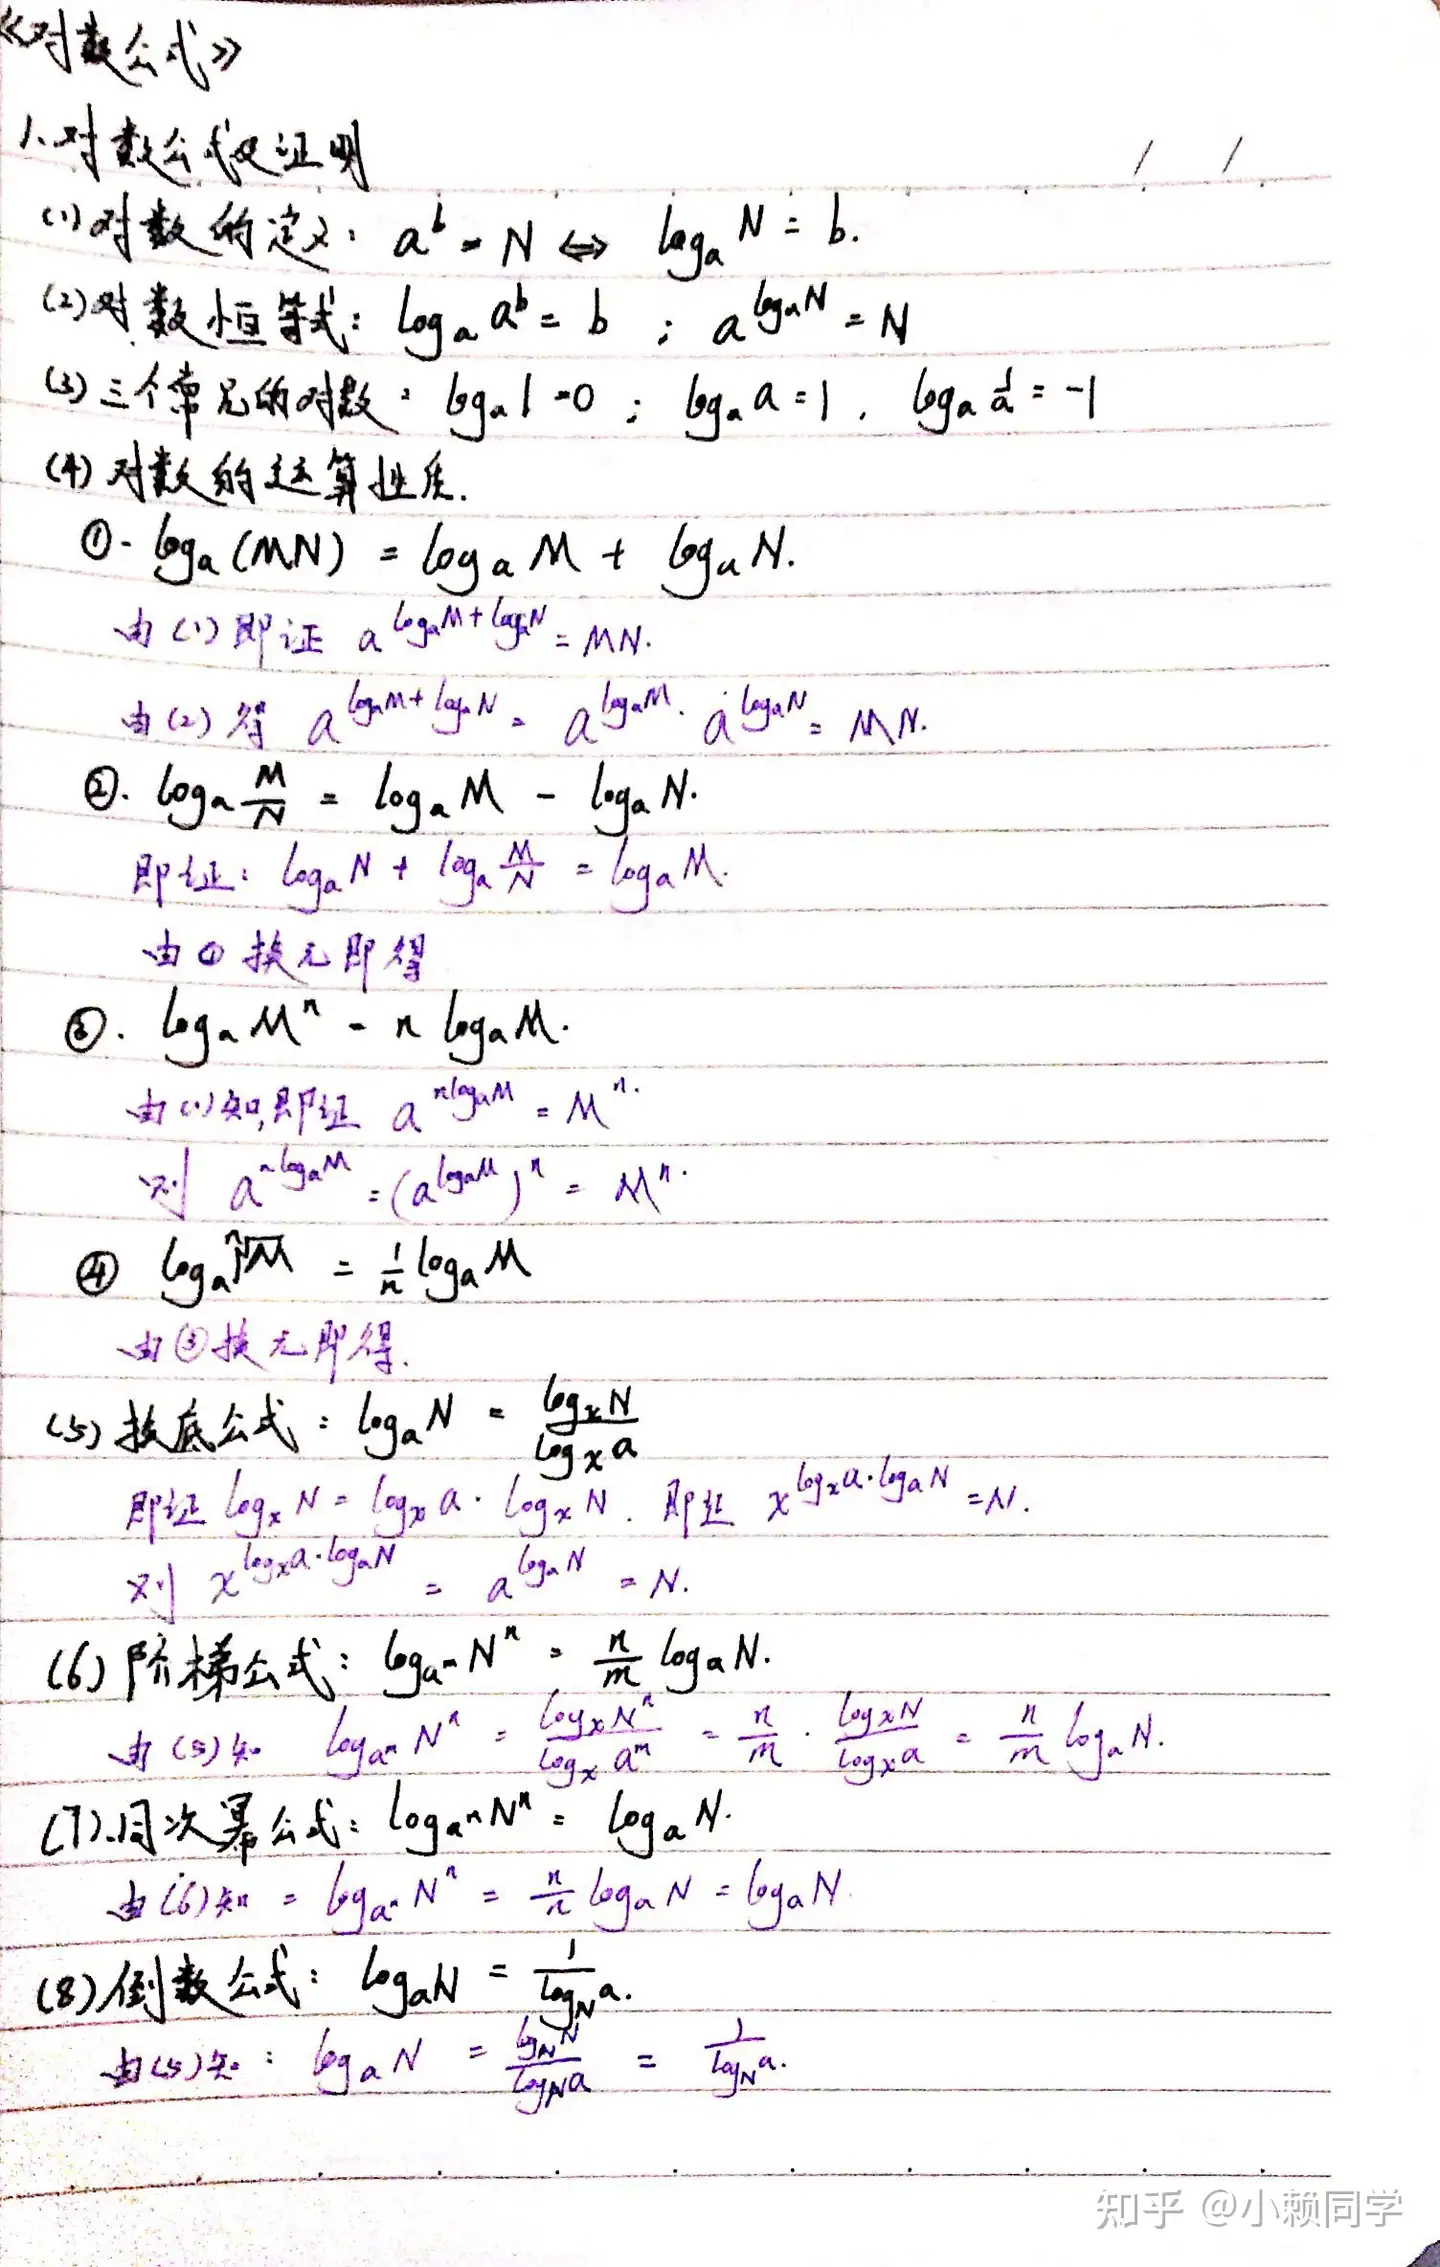 《对数公式》
1、对数公式及证明
(1)对数的定义：a^b = N ⇔ log_a N = b.
(2)对数恒等式：log_a a^b = b ; a^{log_a N} = N
(3)三个常见的对数：log_a 1 = 0 ; log_a a = 1 . log_a \frac{1}{a} = -1
(4)对数的运算性质.
①. log_a (MN) = log_a M + log_a N.
由(1)即证 a^{log_a M + log_a N} = MN.
由(2)得 a^{log_a M + log_a N} = a^{log_a M} · a^{log_a N} = MN.
②. log_a \frac{M}{N} = log_a M - log_a N.
即证：log_a N + log_a \frac{M}{N} = log_a M.
由①换元即得
③. log_a M^n = n log_a M.
由(1)知,即证 a^{n log_a M} = M^n.
则 a^{n log_a M} = (a^{log_a M})^n = M^n.
④ log_a \sqrt[n]{M} = \frac{1}{n} log_a M
由③换元即得.
(5)换底公式：log_a N = \frac{log_x N}{log_x a}
即证 log_x N = log_x a · log_x N. 即证 x^{log_x a · log_a N} = N.
则 x^{log_x a · log_a N} = a^{log_a N} = N.
(6)阶梯公式：log_{a^m} N^n = \frac{n}{m} log_a N.
由(5)知 log_{a^m} N^n = \frac{log_x N^n}{log_x a^m} = \frac{n}{m} · \frac{log_x N}{log_x a} = \frac{n}{m} log_a N.
(7).同次幂公式：log_{a^n} N^n = log_a N.
由(6)知 = log_{a^n} N^n = \frac{n}{n} log_a N = log_a N.
(8)倒数公式：log_a N = \frac{1}{log_N a}.
由(5)知：log_a N = \frac{log_N N}{log_N a} = \frac{1}{log_N a}.
知乎 @小赖同学